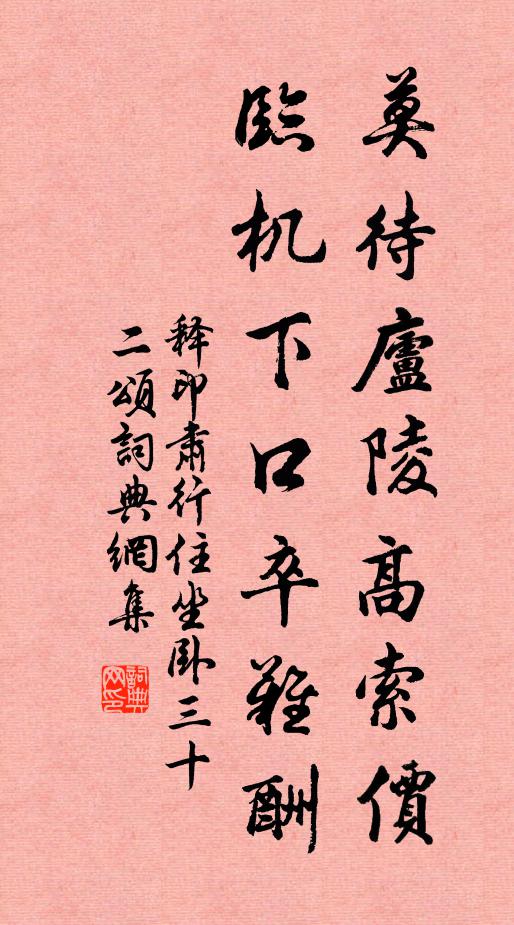 莫待廬陵高索價
臨机下口卒難酬
释印肅行住坐卧三十
二頌詞典網集
詞典
网印